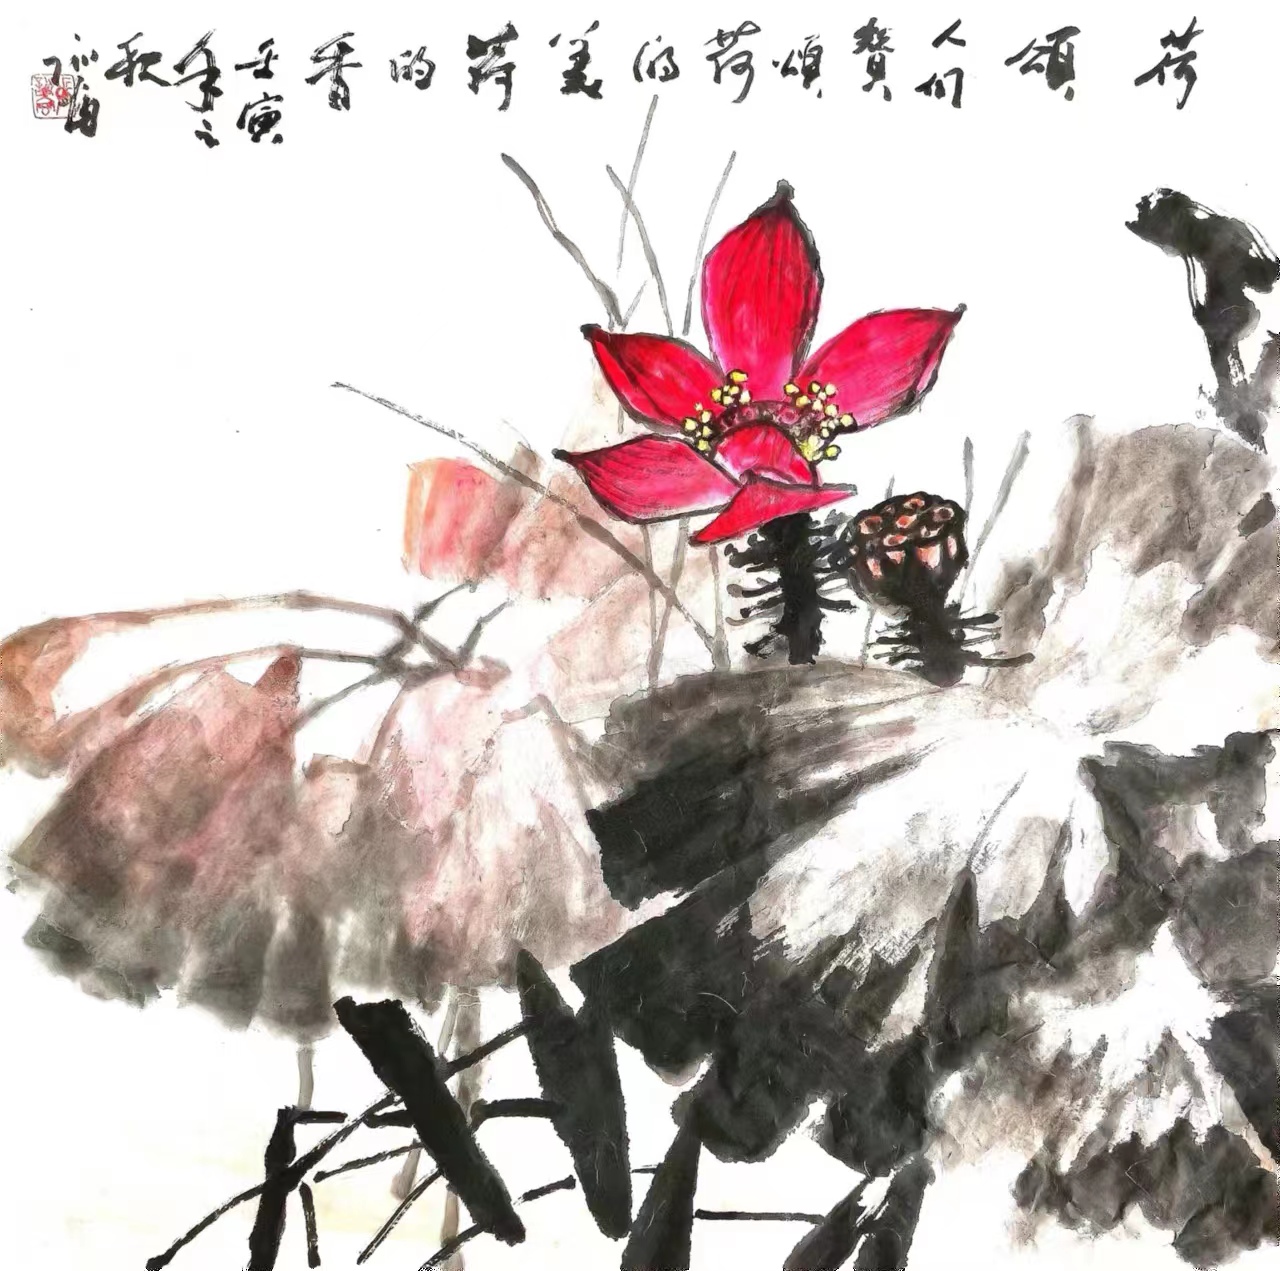 荷颂人们赞颂荷的美荷的香壬寅年之秋